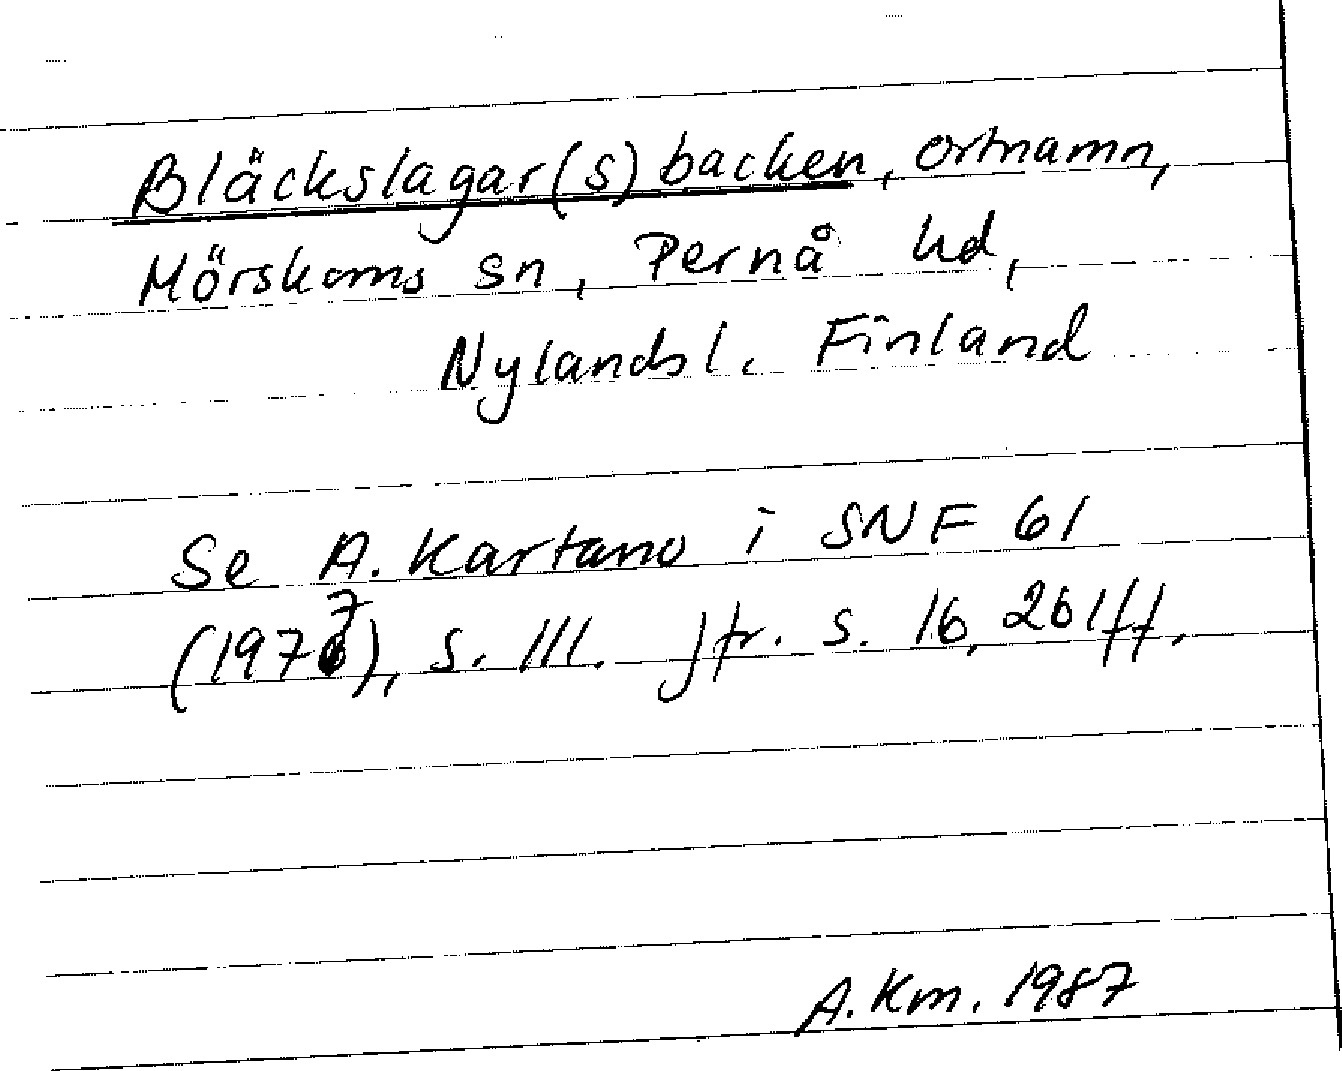 Bläckslagar(s)backen, ortnamn,
Mörskoms sn, Pernå hd,
Nylands l. Finland
Se A. Kartano i SNF 61
(1977), s. 111. Jfr. s. 16, 261ff.
A. Km. 1987